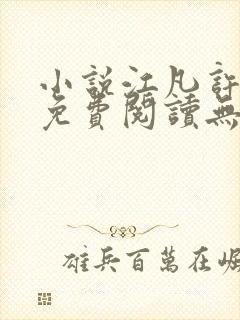 小說江凡許
免費閱讀無
雄兵百萬在崛